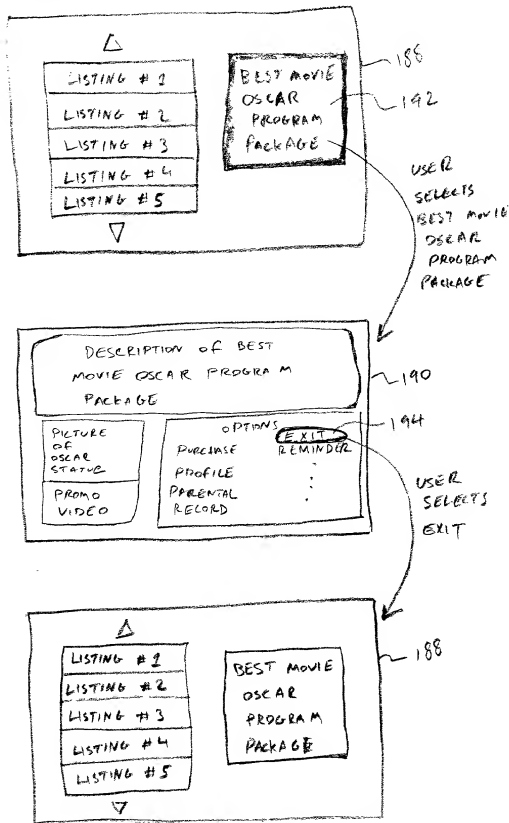 LISTING # 1
LISTING # 2
LISTING # 3
LISTING # 4
LISTING # 5
BEST MOVIE
OSCAR
PROGRAM
PACKAGE
188
192
USER
SELECTS
BEST MOVIE
OSCAR
PROGRAM
PACKAGE
DESCRIPTION OF BEST
MOVIE OSCAR PROGRAM
PACKAGE
190
PICTURE
OF
OSCAR
STATUE
PROMO
VIDEO
OPTIONS
EXIT
194
PURCHASE REMINDER
PROFILE
PARENTAL
RECORD
USER
SELECTS
EXIT
LISTING # 1
LISTING # 2
LISTING # 3
LISTING # 4
LISTING # 5
BEST MOVIE
OSCAR
PROGRAM
PACKAGE
188